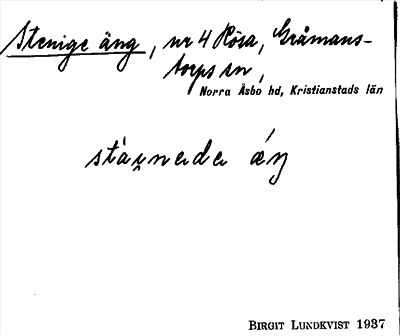 Stenige äng, nr 4 Rösa, Gråmans-
torps sn,
Norra Åsbo hd, Kristianstads län
äŋ
BIRGIT LUNDKVIST 1937